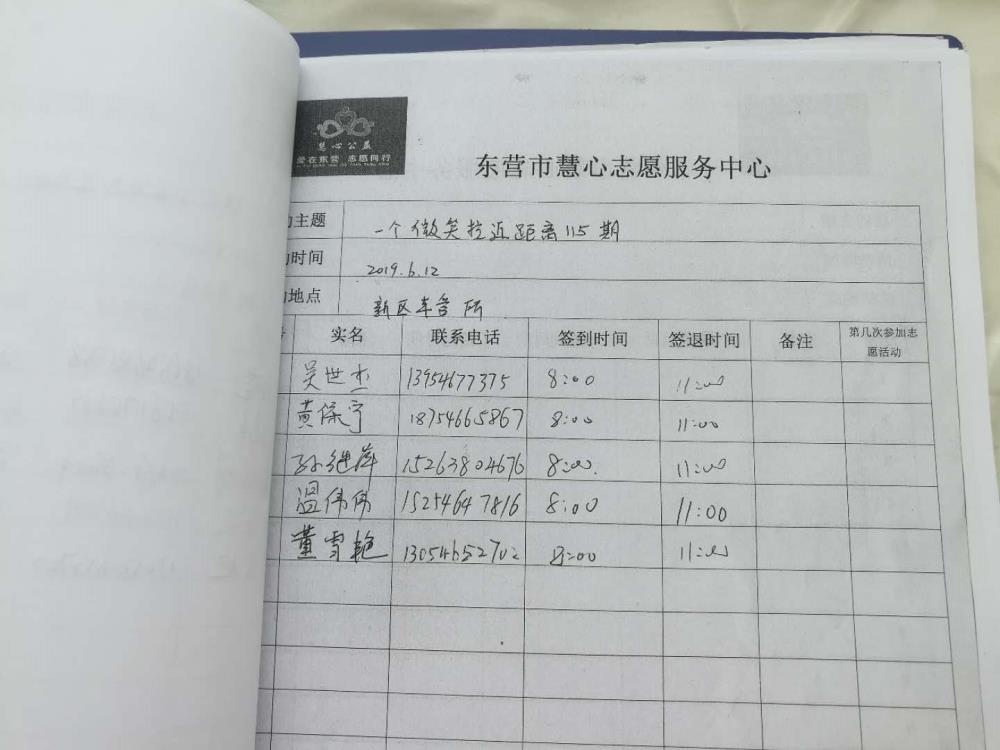 慧心公益
爱在东营 志愿同行
东营市慧心志愿服务中心
主题 一个微笑拉近距离115期
时间 2019.6.12
地点 新区车管所
实名 联系电话 签到时间 签退时间 备注 第几次参加志愿活动
吴世杰 13954677375 8:00 11:00
黄保宁 18754665867 8:00 11:00
孙继萍 15263804676 8:00 11:00
温伟伟 15254647816 8:00 11:00
董雪艳 13054652702 8:00 11:00